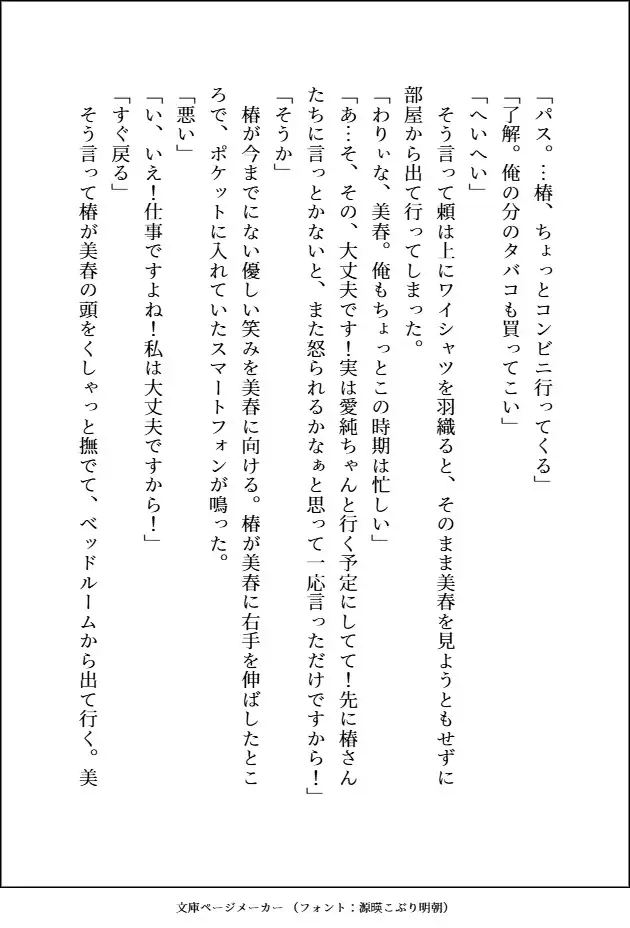 「パス。…椿、ちょっとコンビニ行ってくる」
「了解。俺の分のタバコも買ってこい」
「へいへい」
　そう言って頼は上にワイシャツを羽織ると、そのまま美春を見ようともせずに
部屋から出て行ってしまった。
「わりぃな、美春。俺もちょっとこの時期は忙しい」
「あ…そ、その、大丈夫です！実は愛純ちゃんと行く予定にしてて！先に椿さん
たちに言っとかないと、また怒られるかなぁと思って一応言っただけですから！」
「そうか」
　椿が今までにない優しい笑みを美春に向ける。椿が美春に右手を伸ばしたとこ
ろで、ポケットに入れていたスマートフォンが鳴った。
「悪い」
「い、いえ！仕事ですよね！私は大丈夫ですから！」
「すぐ戻る」
　そう言って椿が美春の頭をくしゃっと撫でて、ベッドルームから出て行く。美
文庫ページメーカー（フォント：源暎こぶり明朝）